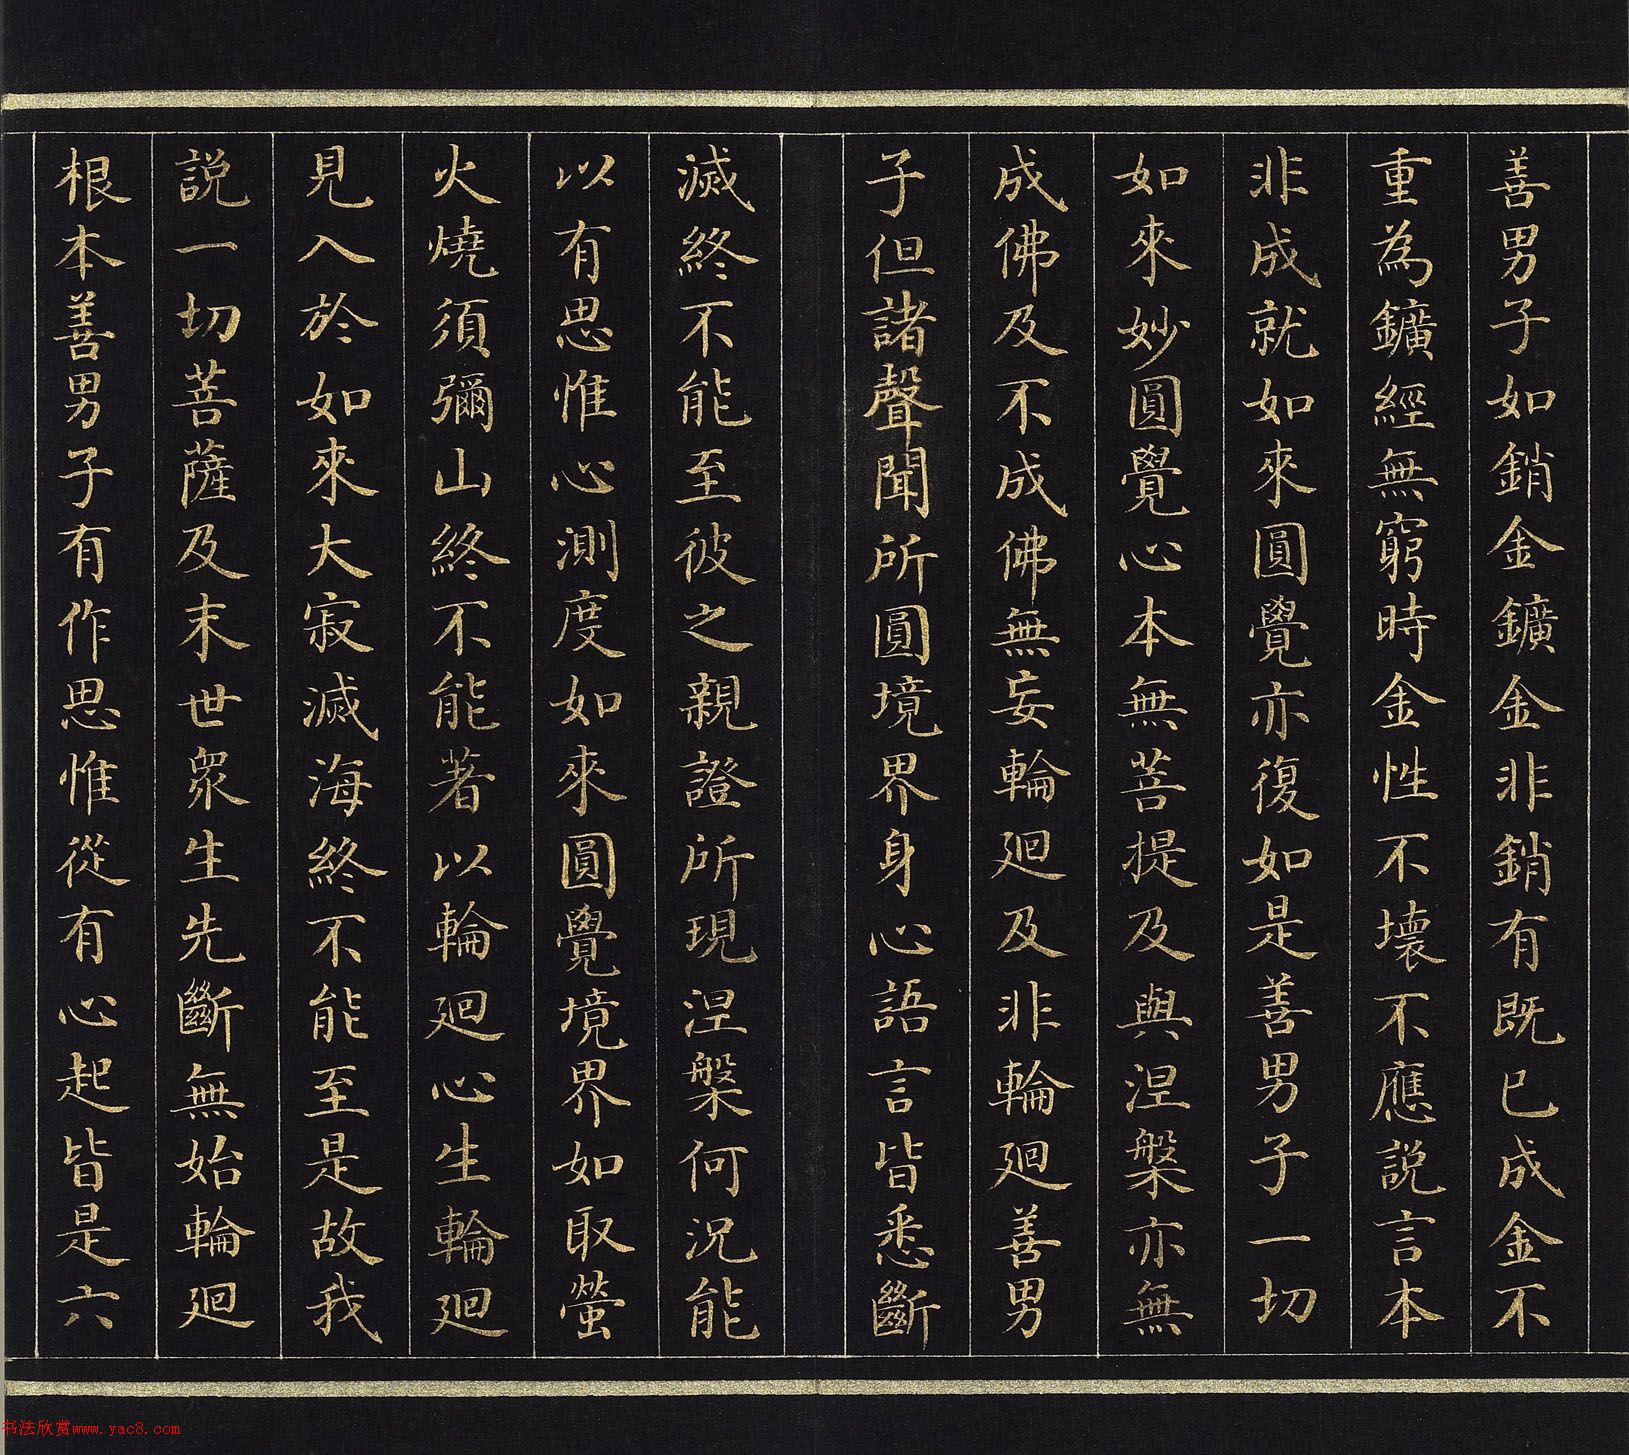 善男子如銷金鑛金非銷有既已成金不
重為鑛經無窮時金性不壞不應説言本
非成就如來圓覺亦復如是善男子一切
如來妙圓覺心本無菩提及與涅槃亦無
成佛及不成佛無妄輪廻及非輪廻善男
子但諸聲聞所圓境界身心語言皆悉斷
滅終不能至彼之親證所現涅槃何況能
以有思惟心測度如來圓覺境界如取螢
火燒須彌山終不能著以輪廻心生輪廻
見入於如來大寂滅海終不能至是故我
説一切菩薩及末世眾生先斷無始輪廻
根本善男子有作思惟從有心起皆是六
书法欣赏www.yac8.com